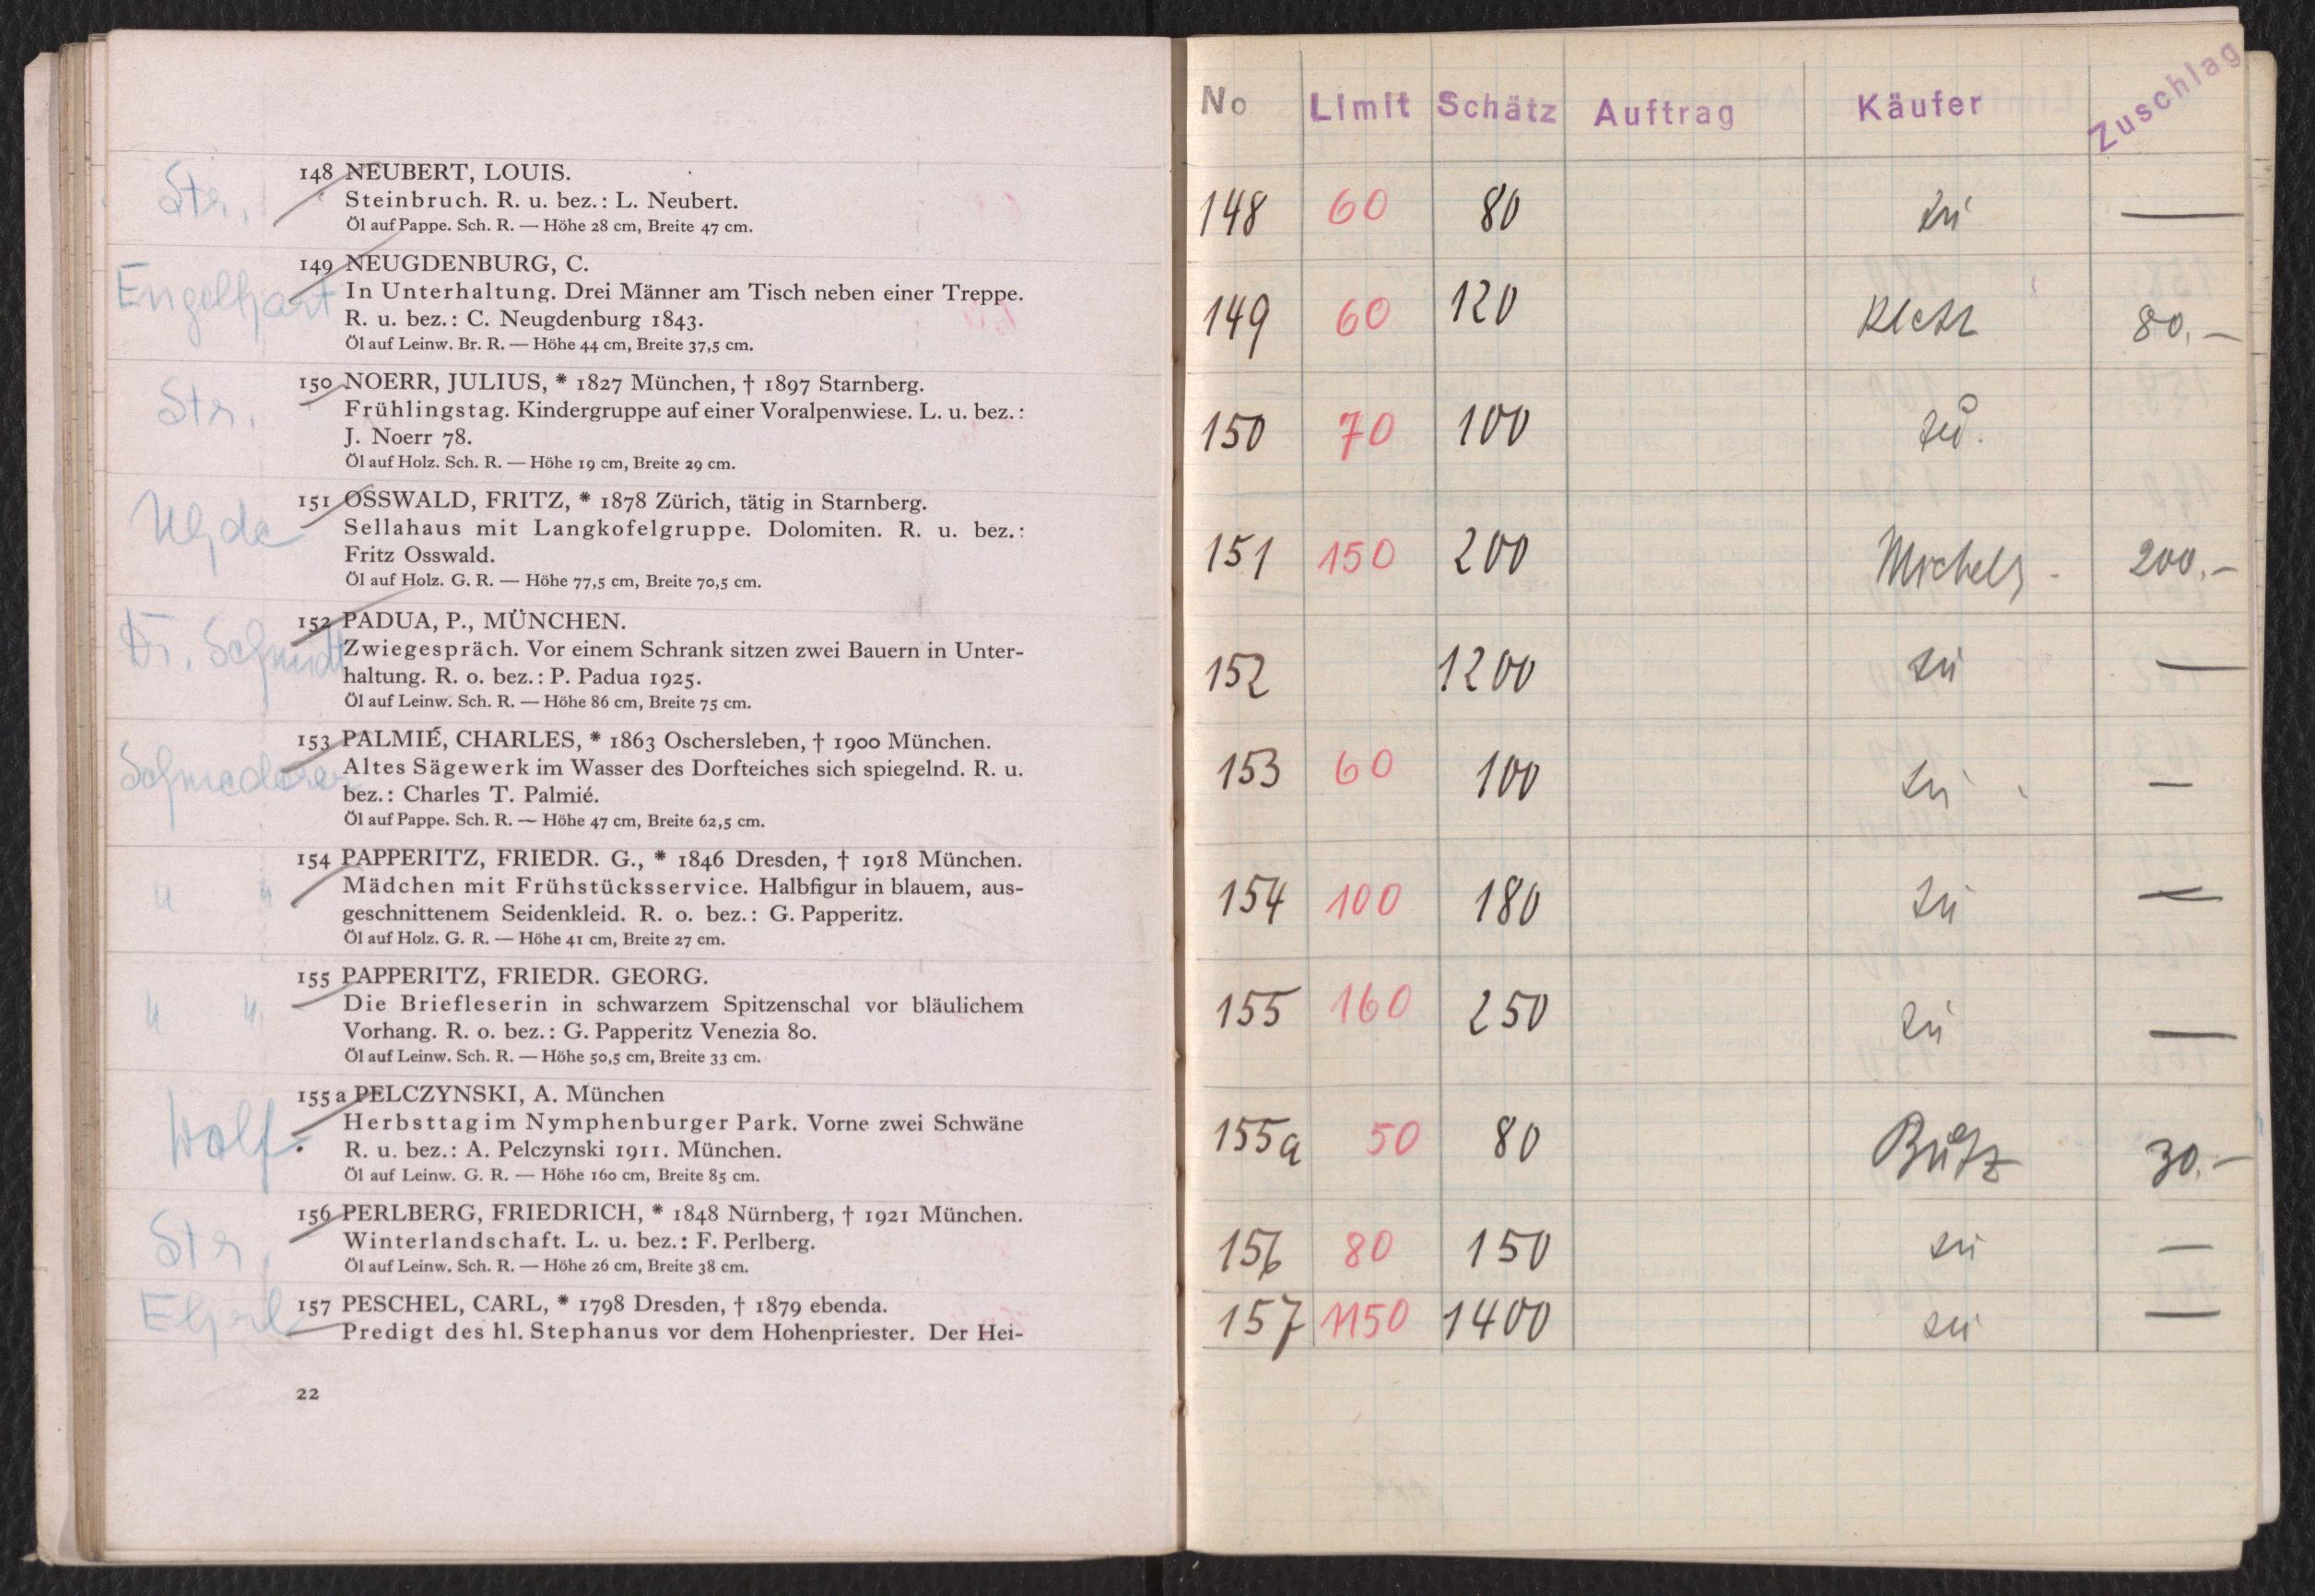 Str.
148 NEUBERT, LOUIS.
Steinbruch. R. u. bez.: L. Neubert.
Öl auf Pappe. Sch. R. — Höhe 28 cm, Breite 47 cm.
Engelhart
149 NEUGDENBURG, C.
In Unterhaltung. Drei Männer am Tisch neben einer Treppe.
R. u. bez.: C. Neugdenburg 1843.
Öl auf Leinw. Br. R. — Höhe 44 cm, Breite 37,5 cm.
Str.
150 NOERR, JULIUS, * 1827 München, † 1897 Starnberg.
Frühlingstag. Kindergruppe auf einer Voralpenwiese. L. u. bez.:
J. Noerr 78.
Öl auf Holz. Sch. R. — Höhe 19 cm, Breite 29 cm.
151 OSSWALD, FRITZ, * 1878 Zürich, tätig in Starnberg.
Sellahaus mit Langkofelgruppe. Dolomiten. R. u. bez.:
Fritz Osswald.
Öl auf Holz. G. R. — Höhe 77,5 cm, Breite 70,5 cm.
Dr. Schmidt
152 PADUA, P., MÜNCHEN.
Zwiegespräch. Vor einem Schrank sitzen zwei Bauern in Unter-
haltung. R. o. bez.: P. Padua 1925.
Öl auf Leinw. Sch. R. — Höhe 86 cm, Breite 75 cm.
Schmederer
153 PALMIÉ, CHARLES, * 1863 Oschersleben, † 1900 München.
Altes Sägewerk im Wasser des Dorfteiches sich spiegelnd. R. u.
bez.: Charles T. Palmié.
Öl auf Pappe. Sch. R. — Höhe 47 cm, Breite 62,5 cm.
" "
154 PAPPERITZ, FRIEDR. G., * 1846 Dresden, † 1918 München.
Mädchen mit Frühstücksservice. Halbfigur in blauem, aus-
geschnittenem Seidenkleid. R. o. bez.: G. Papperitz.
Öl auf Holz. G. R. — Höhe 41 cm, Breite 27 cm.
" "
155 PAPPERITZ, FRIEDR. GEORG.
Die Briefleserin in schwarzem Spitzenschal vor bläulichem
Vorhang. R. o. bez.: G. Papperitz Venezia 80.
Öl auf Leinw. Sch. R. — Höhe 50,5 cm, Breite 33 cm.
Wolf.
155 a PELCZYNSKI, A. München
Herbsttag im Nymphenburger Park. Vorne zwei Schwäne
R. u. bez.: A. Pelczynski 1911. München.
Öl auf Leinw. G. R. — Höhe 160 cm, Breite 85 cm.
Str.
156 PERLBERG, FRIEDRICH, * 1848 Nürnberg, † 1921 München.
Winterlandschaft. L. u. bez.: F. Perlberg.
Öl auf Leinw. Sch. R. — Höhe 26 cm, Breite 38 cm.
157 PESCHEL, CARL, * 1798 Dresden, † 1879 ebenda.
Predigt des hl. Stephanus vor dem Hohenpriester. Der Hei-
22
No Limit Schätz Auftrag Käufer Zuschlag
148 60 80 zü —
149 60 120 80.—
150 70 100 zü.
151 150 200 Michels 200.—
152 1200 zü —
153 60 100 zü —
154 100 180 zü —
155 160 250 zü —
155a 50 80 30.—
156 80 150 zü —
157 1150 1400 zü —